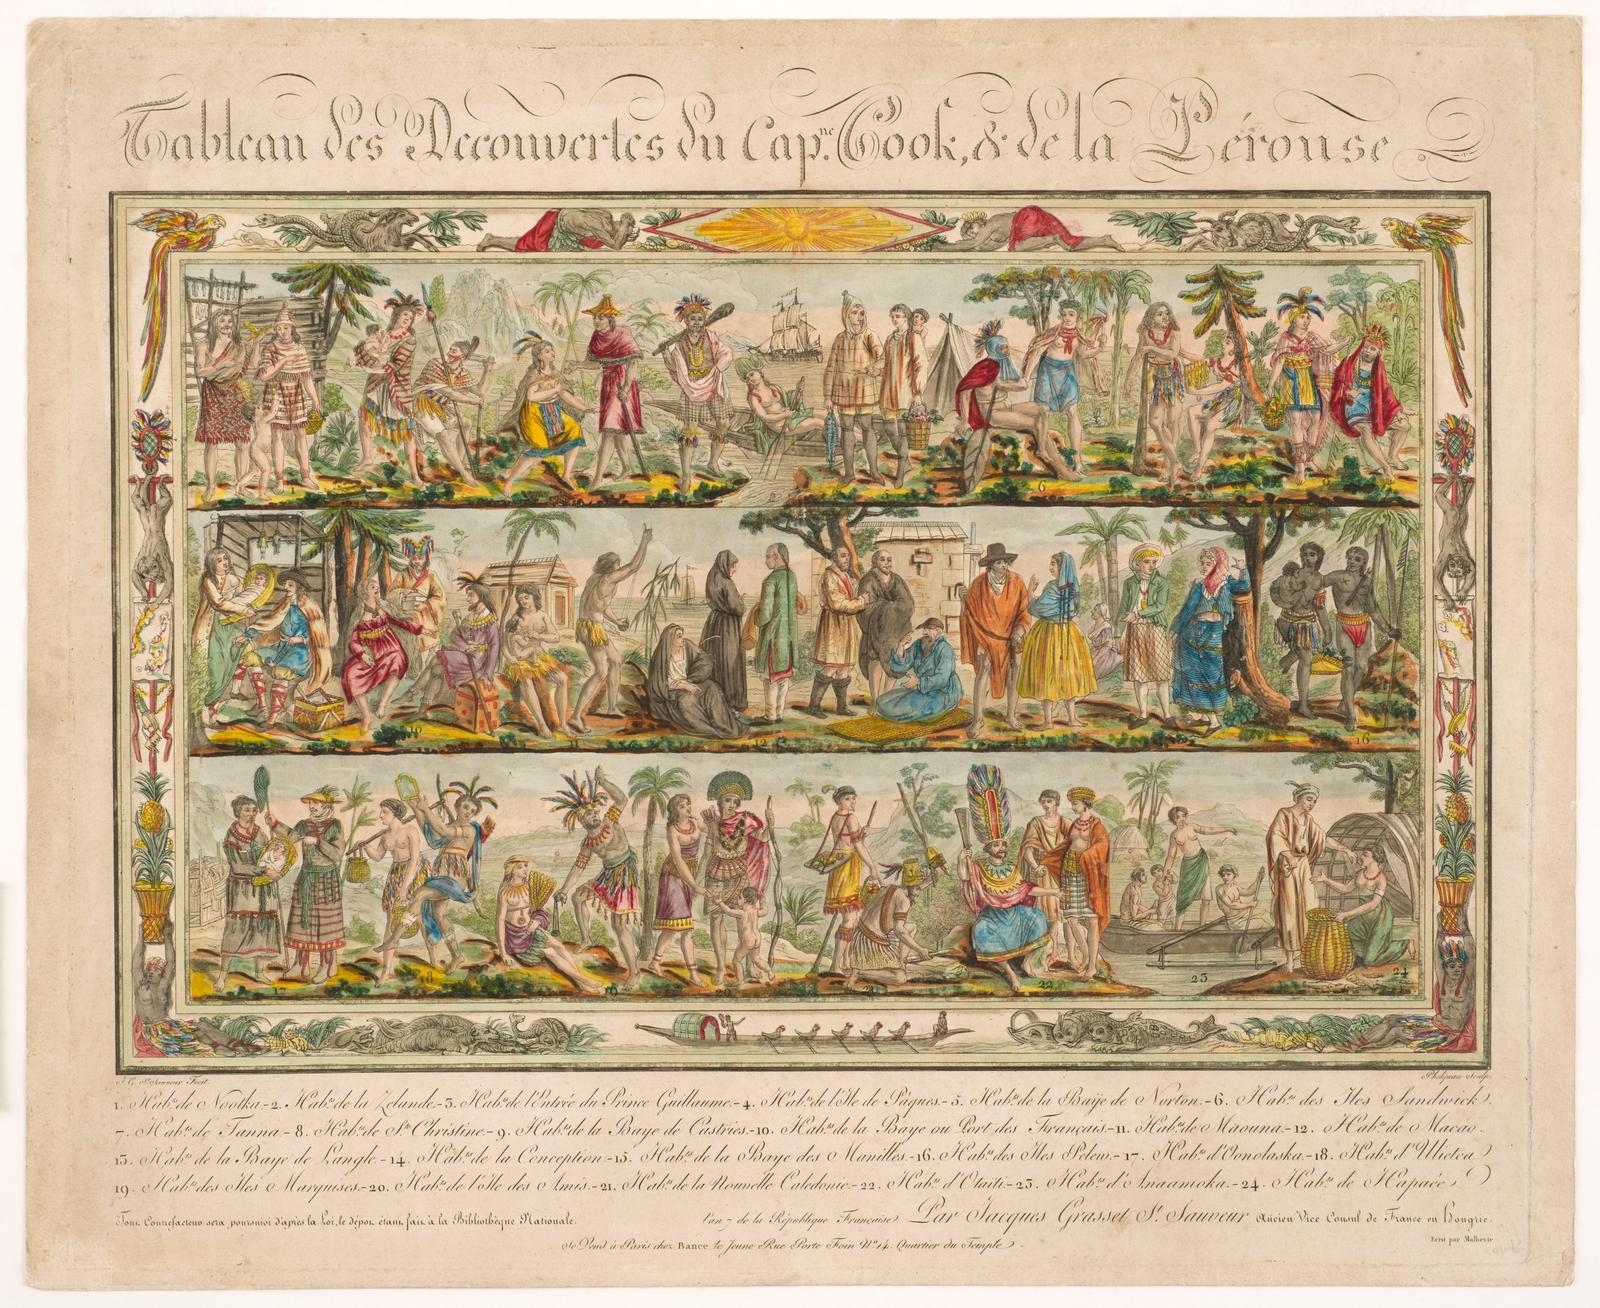 Tableau des Decouvertes du Cap.ne Cook, & de la Pérouse
6
8
10
12
16
17
18
20
21
22
23
24
J. G. St. Sauveur Fecit.
Phelipeau Sculp.
1. Hab.ns de Nootka.-2. Hab.ns de la Zelande.-3. Hab.ns de l'Entrée du Prince Guillaume.-4. Hab.ns de l'Ile de Pâques.-5. Hab.ns de la Baÿe de Norton.-6. Hab.ns des Iles Sandwick.
7. Hab.ns de Tanna.-8. Hab.ns de Ste Christine.-9. Hab.ns de la Baye de Castries.-10. Hab.ns de la Baye ou Port des Français.-11. Hab.ns de Maouna.-12. Hab.ns de Macao.
13. Hab.ns de la Baye de Langle.-14. Hab.ns de la Conception.-15. Hab.ns de la Baye des Manilles.-16. Hab.ns des Iles Pelew.-17. Hab.ns d'Oonolaska.-18. Hab.ns d'Ulietea
19. Hab.ns des Iles Marquises.-20. Hab.ns de l'Ile des Amis.-21. Hab.ns de la Nouvelle Caledonie.-22. Hab.ns d'Otaïti.-23. Hab.ns d'Anaamoka.-24. Hab.ns de Hapaée.
Tout Contrefacteur sera poursuivi d'après la Loi, le dépot étant fait à la Bibliothèque Nationale. l'an 7 de la République Française. Par Jacques Grasset St. Sauveur Ancien Vice Consul de France en Hongrie.
Se Vend à Paris chez Bance le Jeune Rue Porte Foin No. 14. Quartier du Temple.
Ecrit par Malbeste